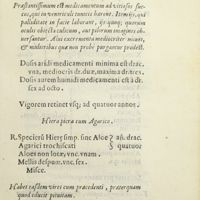 Præstantissimum est medicamentum ad vitiosos suc-
cos, qui in ventriculi tunicis hærent. Itemque, qui
palliditate in facie laborant, ijsque, quorum
oculi obiecta caduca, aut pilorum imagines ob-
seruantur. Aluus exerementa mediocriter mouet,
& mulieribus quæ non probe purgantur prodest.
Dosis aridi medicamenti minima est drac.
vna, mediocris dr. duæ, maxima dr. tres.
Dosis autem harum medicamenti est à dr.
sex ad octo.
Vigorem retinet vsque ad quatuor annos.
Hiera picra cum Agarico.
R. Specierū Hieræ simp. sine Aloe añ. drac.
Agarici trochiscati quatuor
Aloes non lotæ, vnc. vnam.
Mellis despum. vnc. sex.
Misce.
Habet easdem vires cum præcedenti, præterquam
quod educit pituitam.